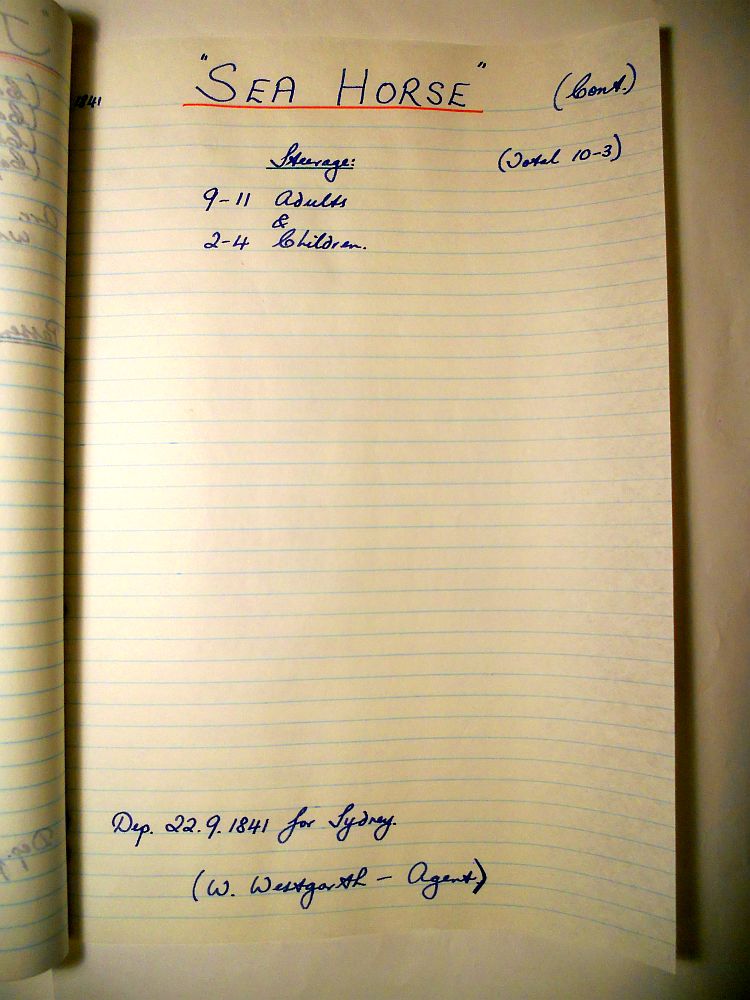 1841
"SEA HORSE" (Cont.)
Steerage: (Total 10-3)
9-11 Adults
&
2-4 Children.
Dep. 22.9.1841 for Sydney.
(W. Westgarth - Agent)